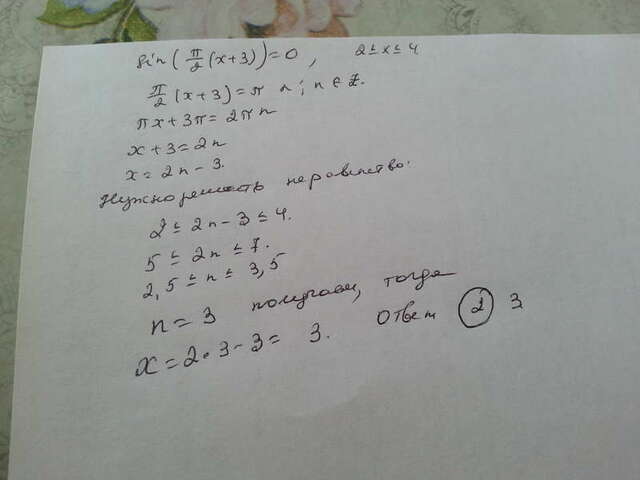 sin(π/2 (x+3))=0, 2≤x≤4
π/2 (x+3)=π n; n∈Z.
πx+3π=2πn
x+3=2n
x=2n-3.
Нужно решить неравенство:
2≤2n-3≤4.
5≤2n≤7.
2,5≤n≤3,5
n=3 получаем, тогда
x=2•3-3= 3. Ответ 2 3